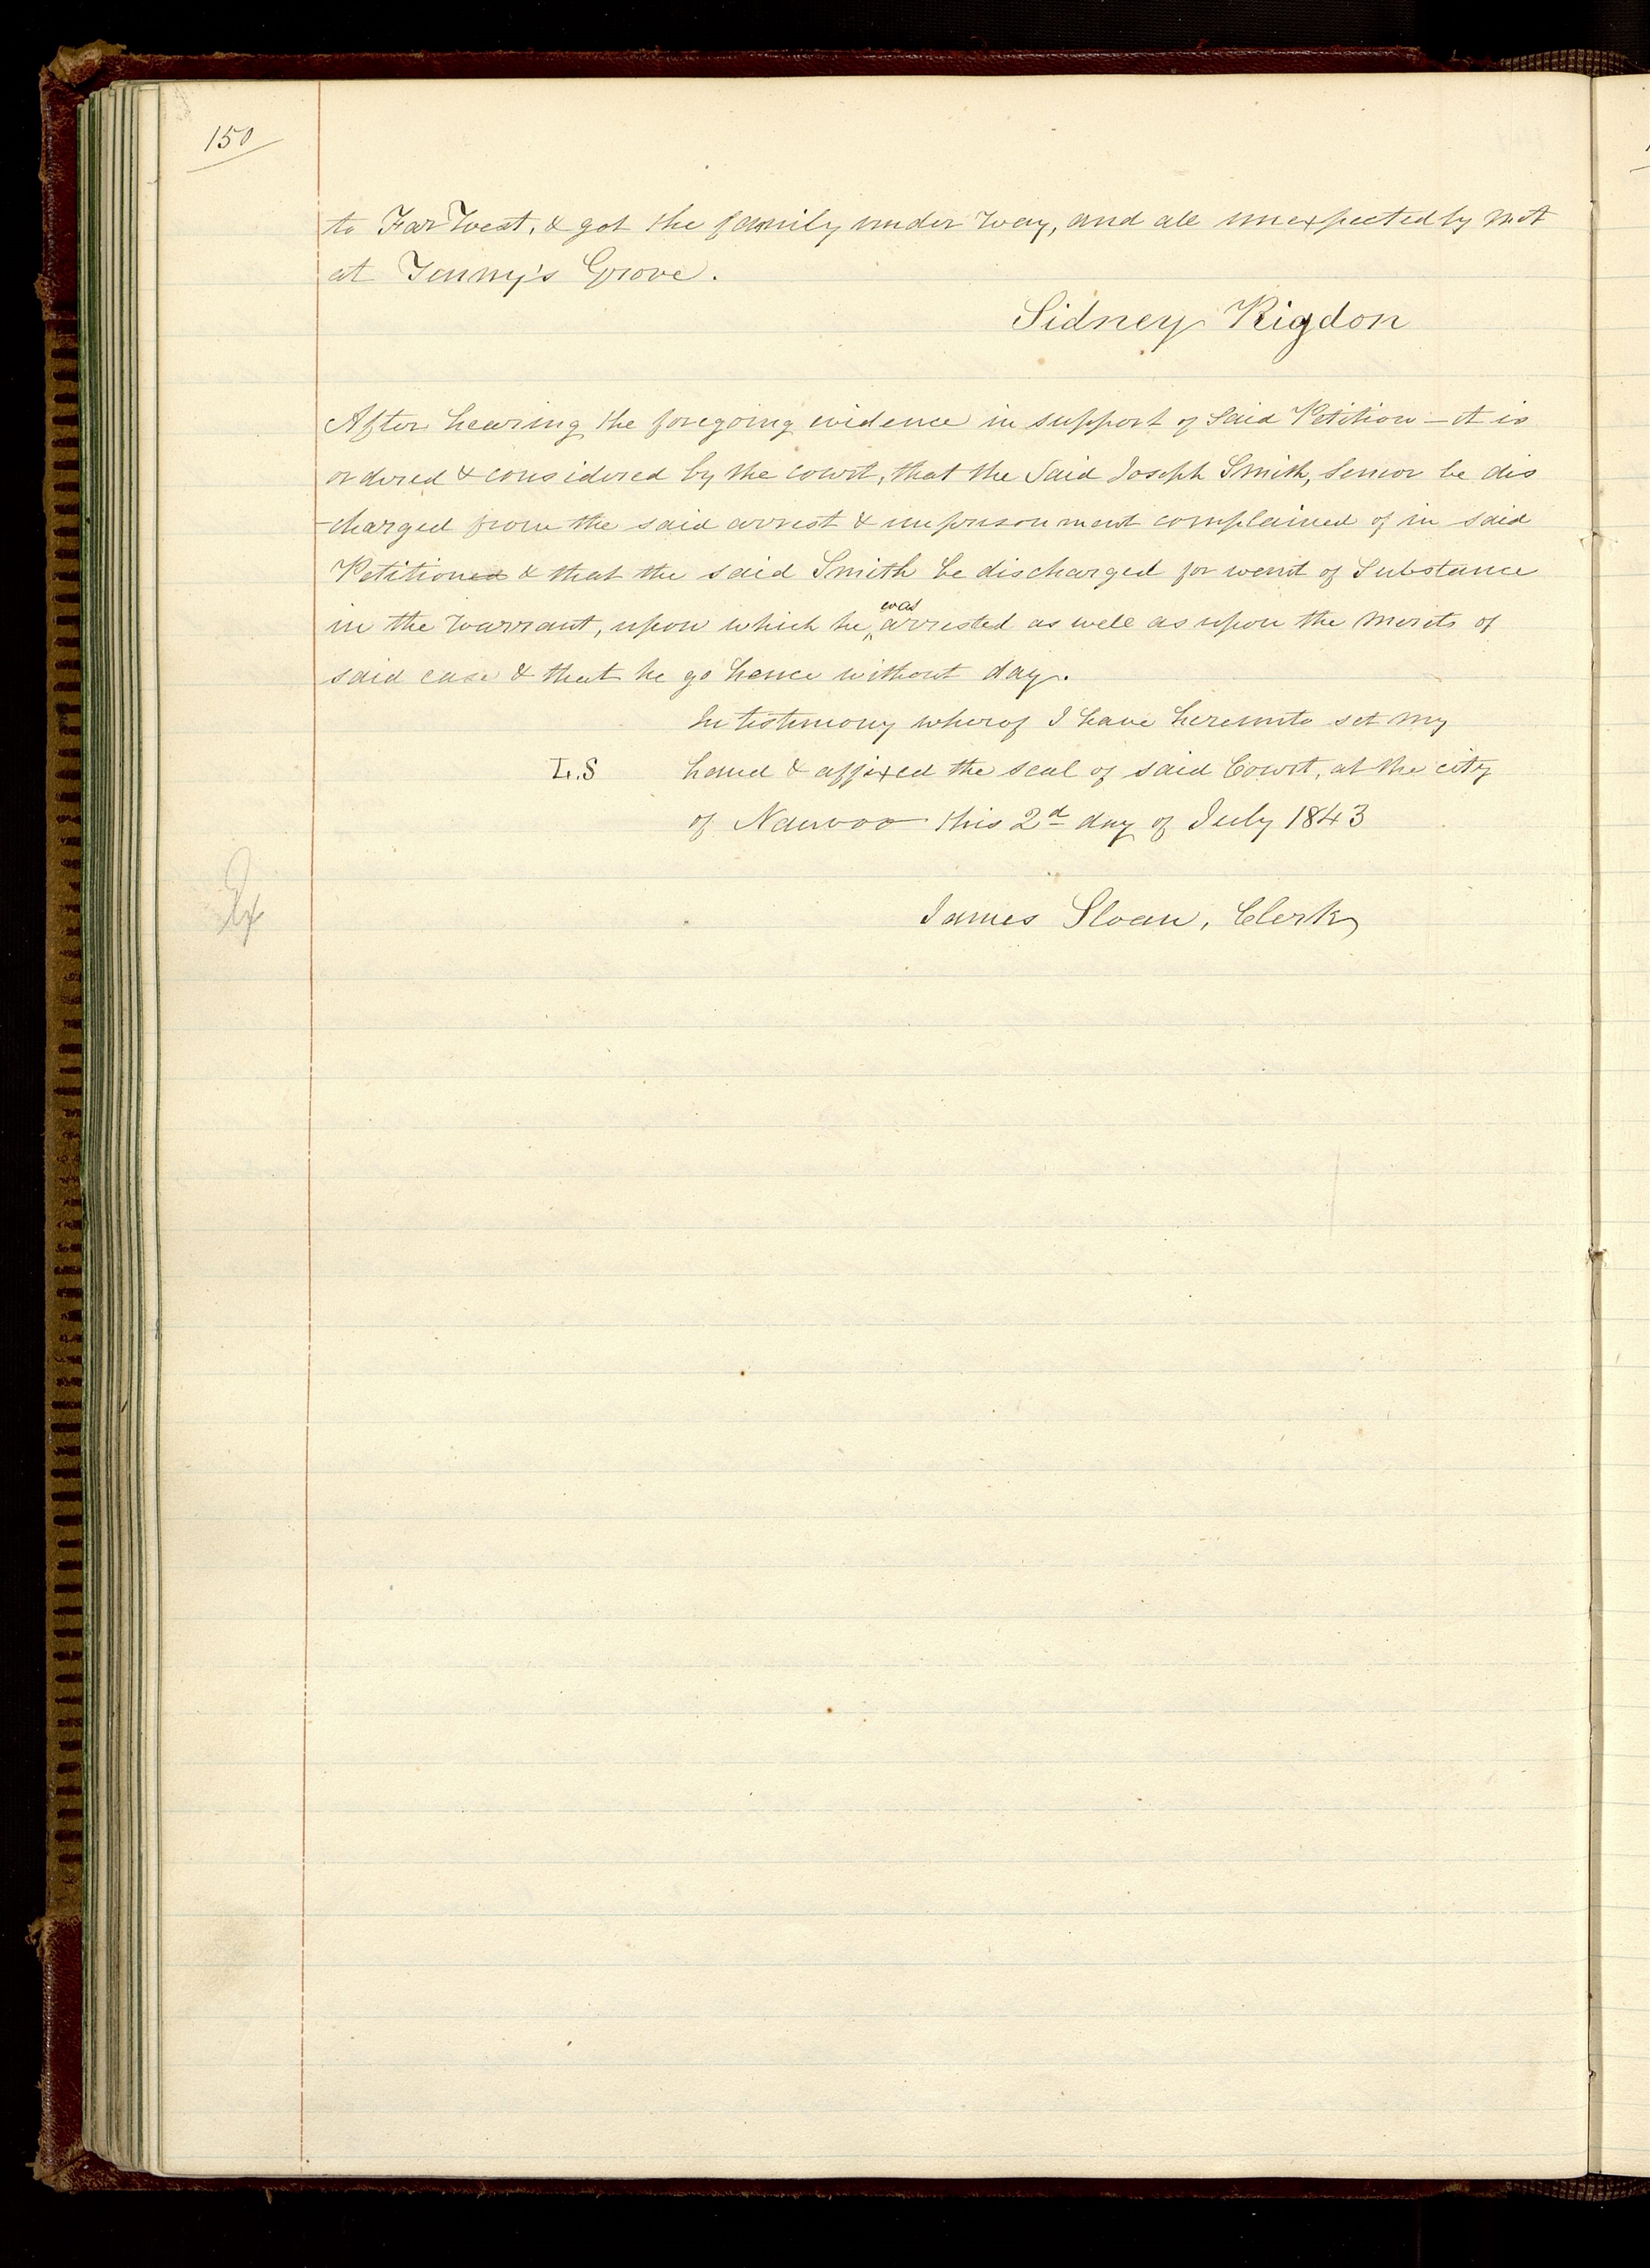 150
to Far West, & got the family under way, and all unexpectedly met
at Tenny's Grove.
Sidney Rigdon
After hearing the foregoing evidence in support of said Petition — it is
ordered & considered by the court, that the said Joseph Smith, senior be dis
charged from the said arrest & imprisonment complained of in said
Petitioned & that the said Smith be discharged for want of Substance
in the warrant, upon which he was arrested as well as upon the merits of
said case & that he go hence without day.
In testimony wherof I have hereunto set my
L.S hand & affixed the seal of said Court, at the city
of Nauvoo this 2d day of July 1843
James Sloan, Clerk